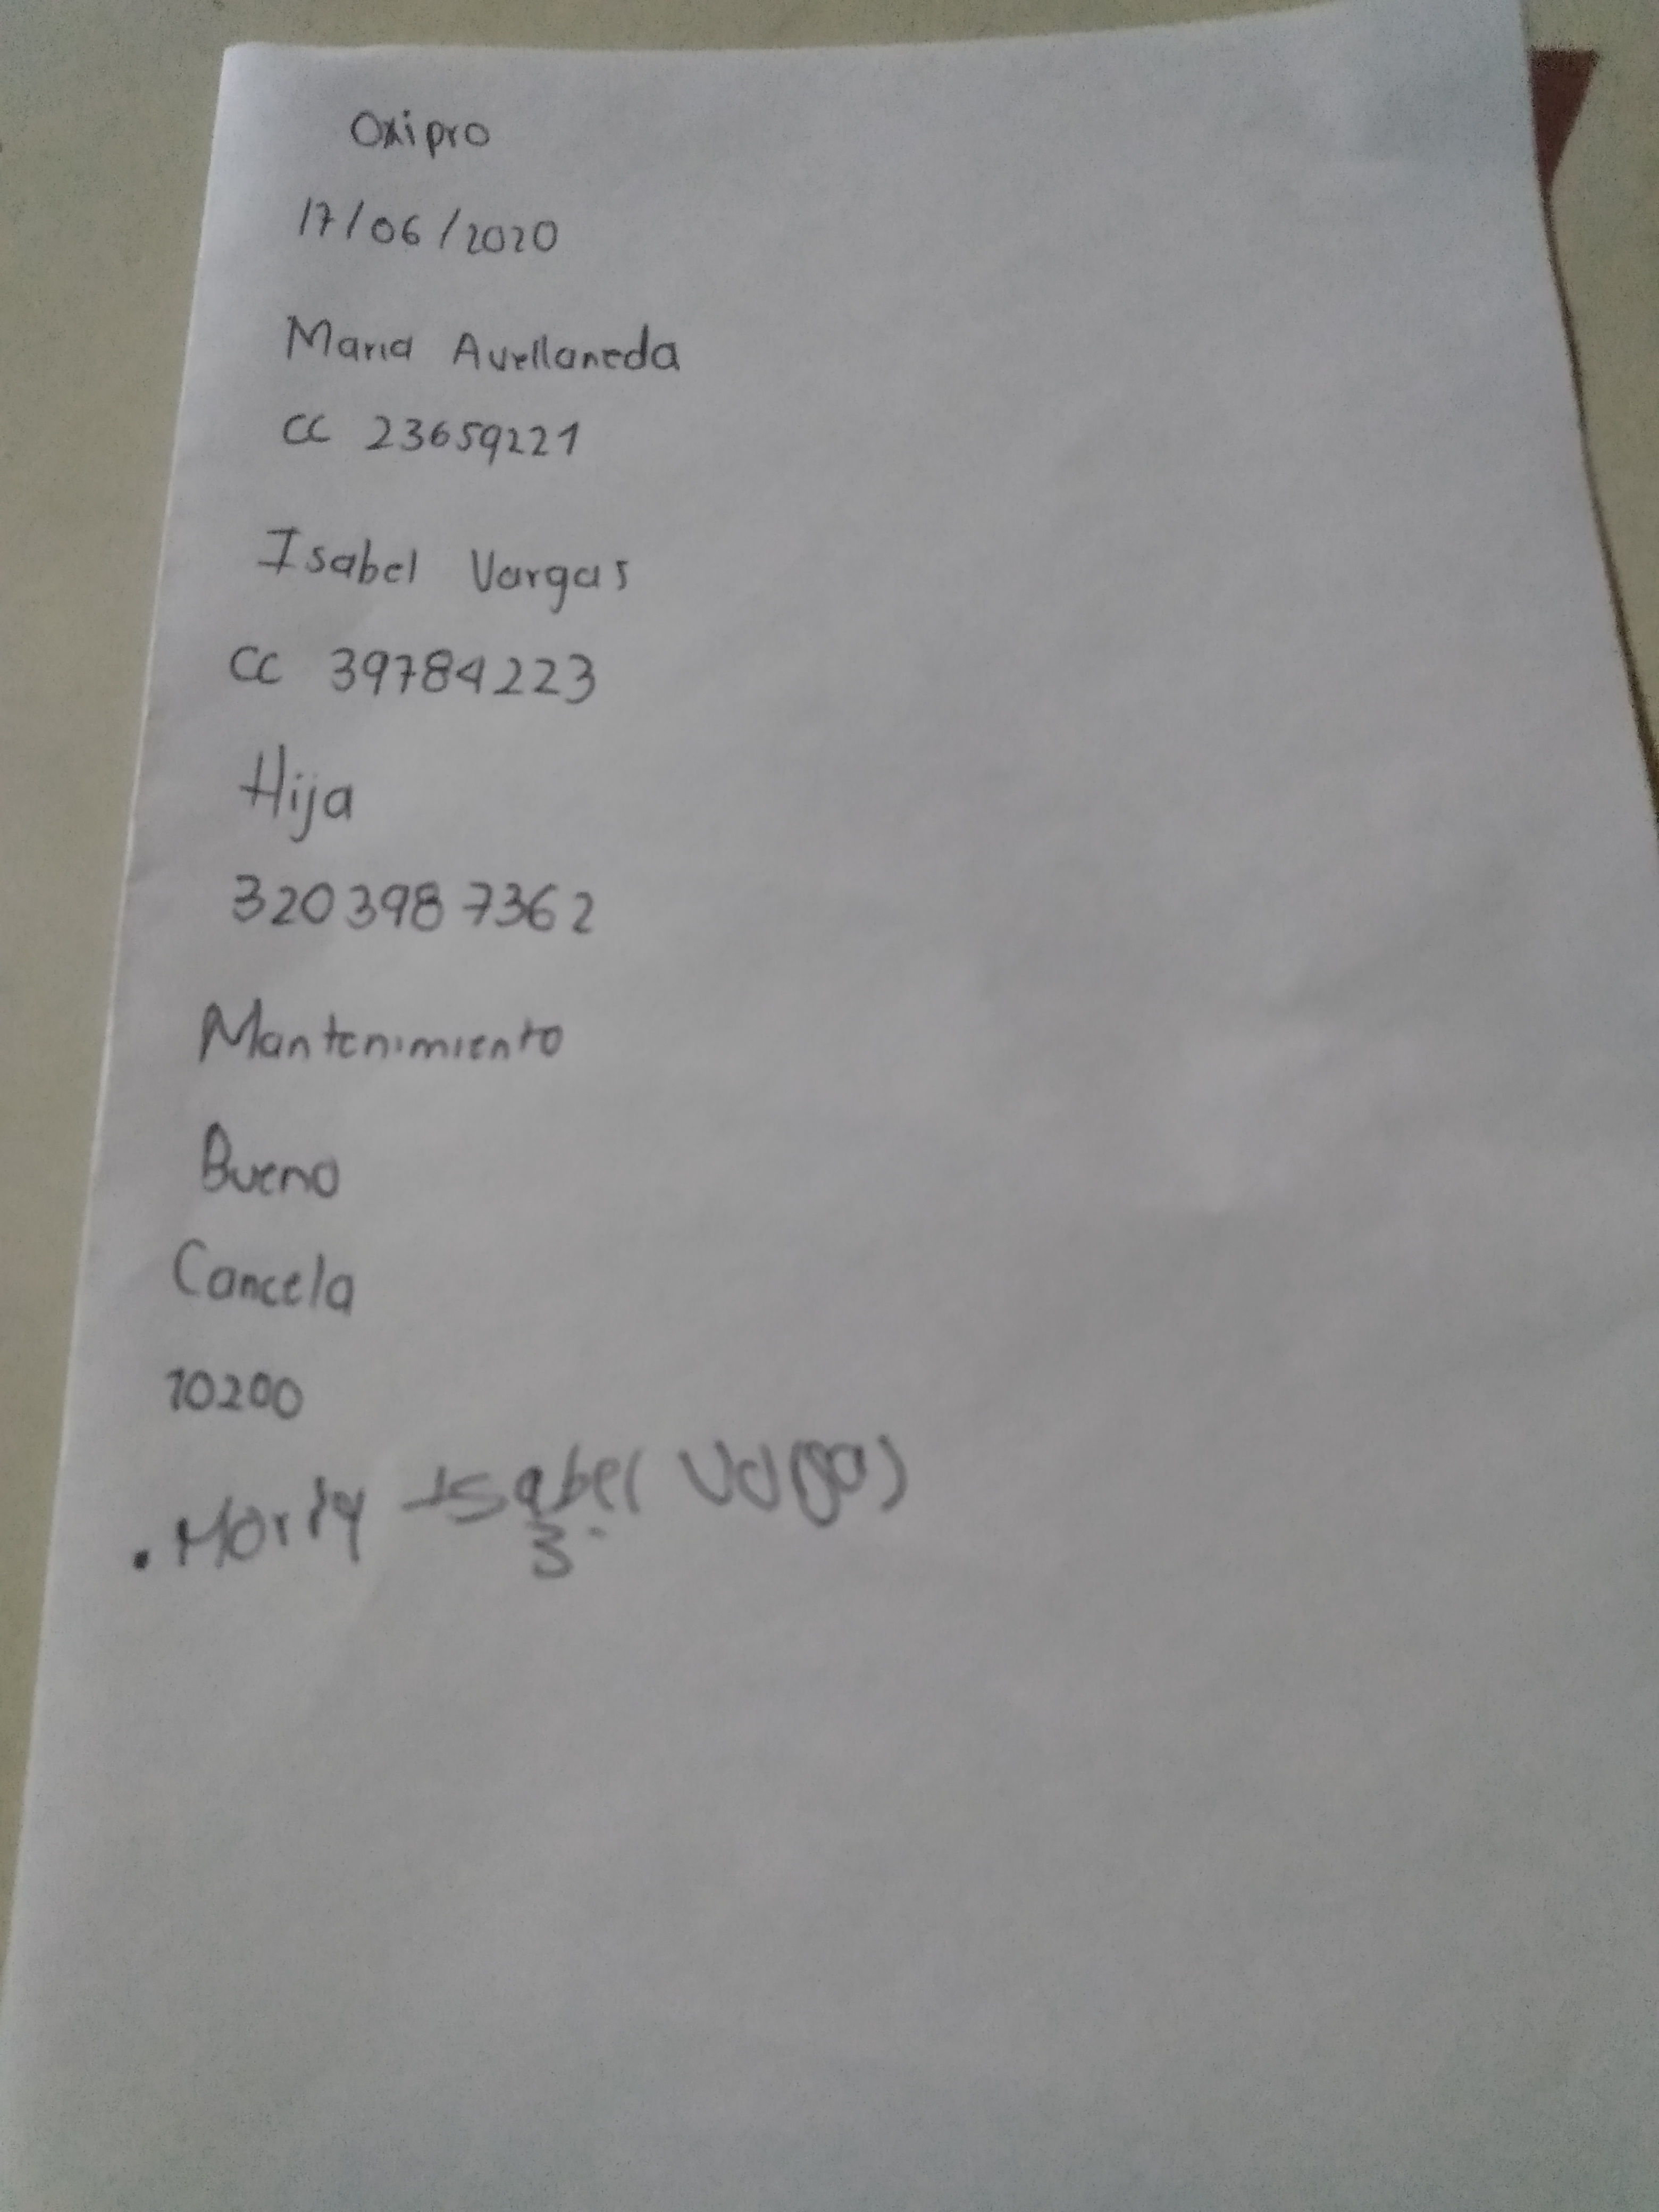 Oxipro
17/06/2020
Maria Avellaneda
CC 23659221
Isabel Vargas
CC 39784223
Hija
320 398 7362
Mantenimiento
Bueno
Cancela
10200
Isabel Vargas